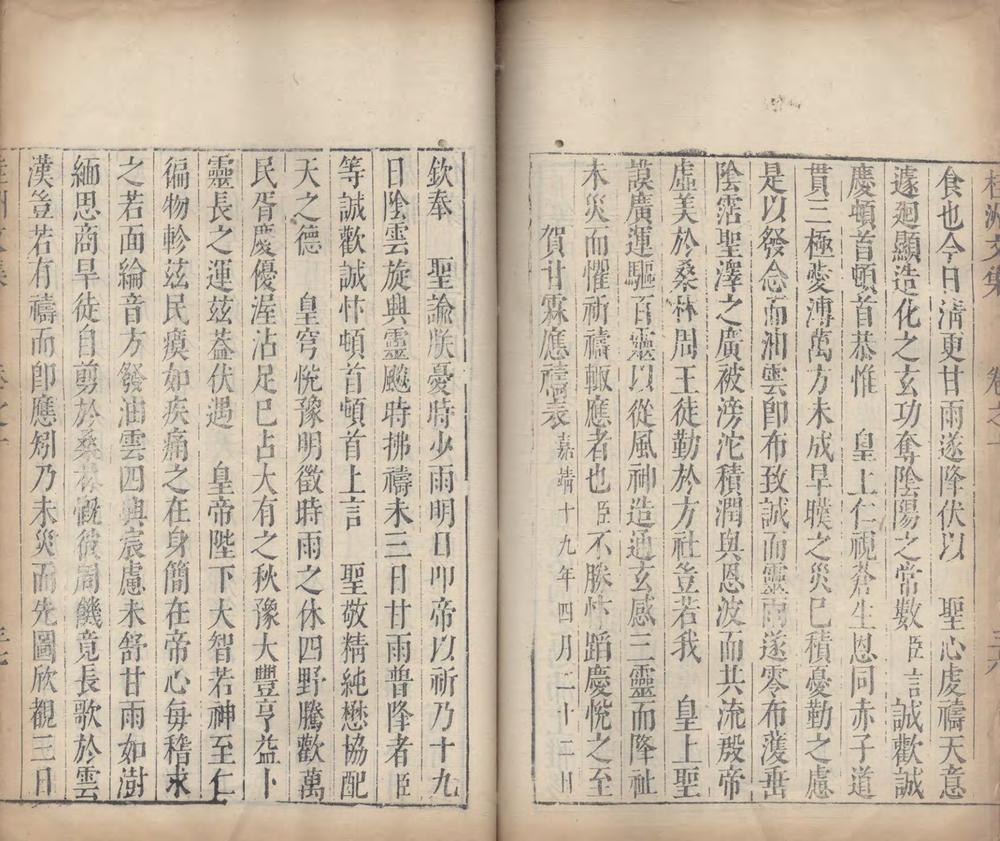 桂洲文集 卷之十 三十六
食也今日淸更甘雨遂降伏以 聖心虔禱天意
遽廻顯造化之玄功奪陰陽之常數臣言誠歡誠
慶頓首頓首恭惟 皇上仁視蒼生恩同赤子道
貫三極變溥萬方未成旱暵之災已積憂勤之慮
是以發念而油雲卽布致誠而靈雨遂零布濩垂
陰霑聖澤之廣被滂沱積潤與恩波而共流殷帝
虛美於桑林周王徒勤於方社豈若我 皇上聖
謨廣運驅百靈以從風神造通玄感三靈而降祉
未災而懼祈禱輙應者也臣不勝忭蹈慶悅之至
賀甘霖應禱表嘉靖十九年四月二十二日
欽奉 聖諭朕憂時少雨明日叩帝以祈乃十九
日陰雲旋興靈颷時拂禱未三日甘雨普降者臣
等誠歡誠忭頓首頓首上言 聖敬精純懋協配
天之德 皇穹悅豫明徵時雨之休四野騰歡萬
民胥慶優渥沾足已占大有之秋豫大豐亨益卜
靈長之運玆葢伏遇 皇帝陛下大智若神至仁
徧物軫玆民瘼如疾痛之在身簡在帝心每稽求
之若面綸音方發油雲四興宸慮未舒甘雨如澍
緬思商旱徒自剪於桑林慨彼周饑竟長歌於雲
漢豈若有禱而卽應矧乃未災而先圖欣覩三日
桂洲文集 卷之十 三十七